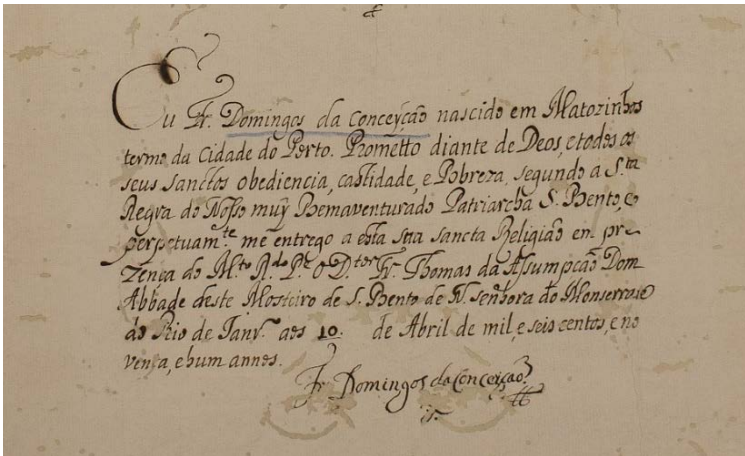 Eu Fr. Domingos da Conceyção nascido em Matozinhos
termo da Cidade do Porto. Prometto diante de Deos, e todos os
seus Sanctos obediencia, castidade, e Pobreza, segundo a S.ta
Regra do Nosso muÿ Bemaventurado Patriarcha S. Bento, e
perpetuam.te me entrego a esta sua sancta Religião em pre-
zença do M.to R.do P.e o D.tor Fr. Thomas da Assumpção Dom
Abbade deste Mosteiro de S. Bento de N. senhora do Monserrate
do Rio de Janr.o aos 10. de Abril de mil, e seis centos, e no
venta, e hum annos.
Fr Domingos da Conceição